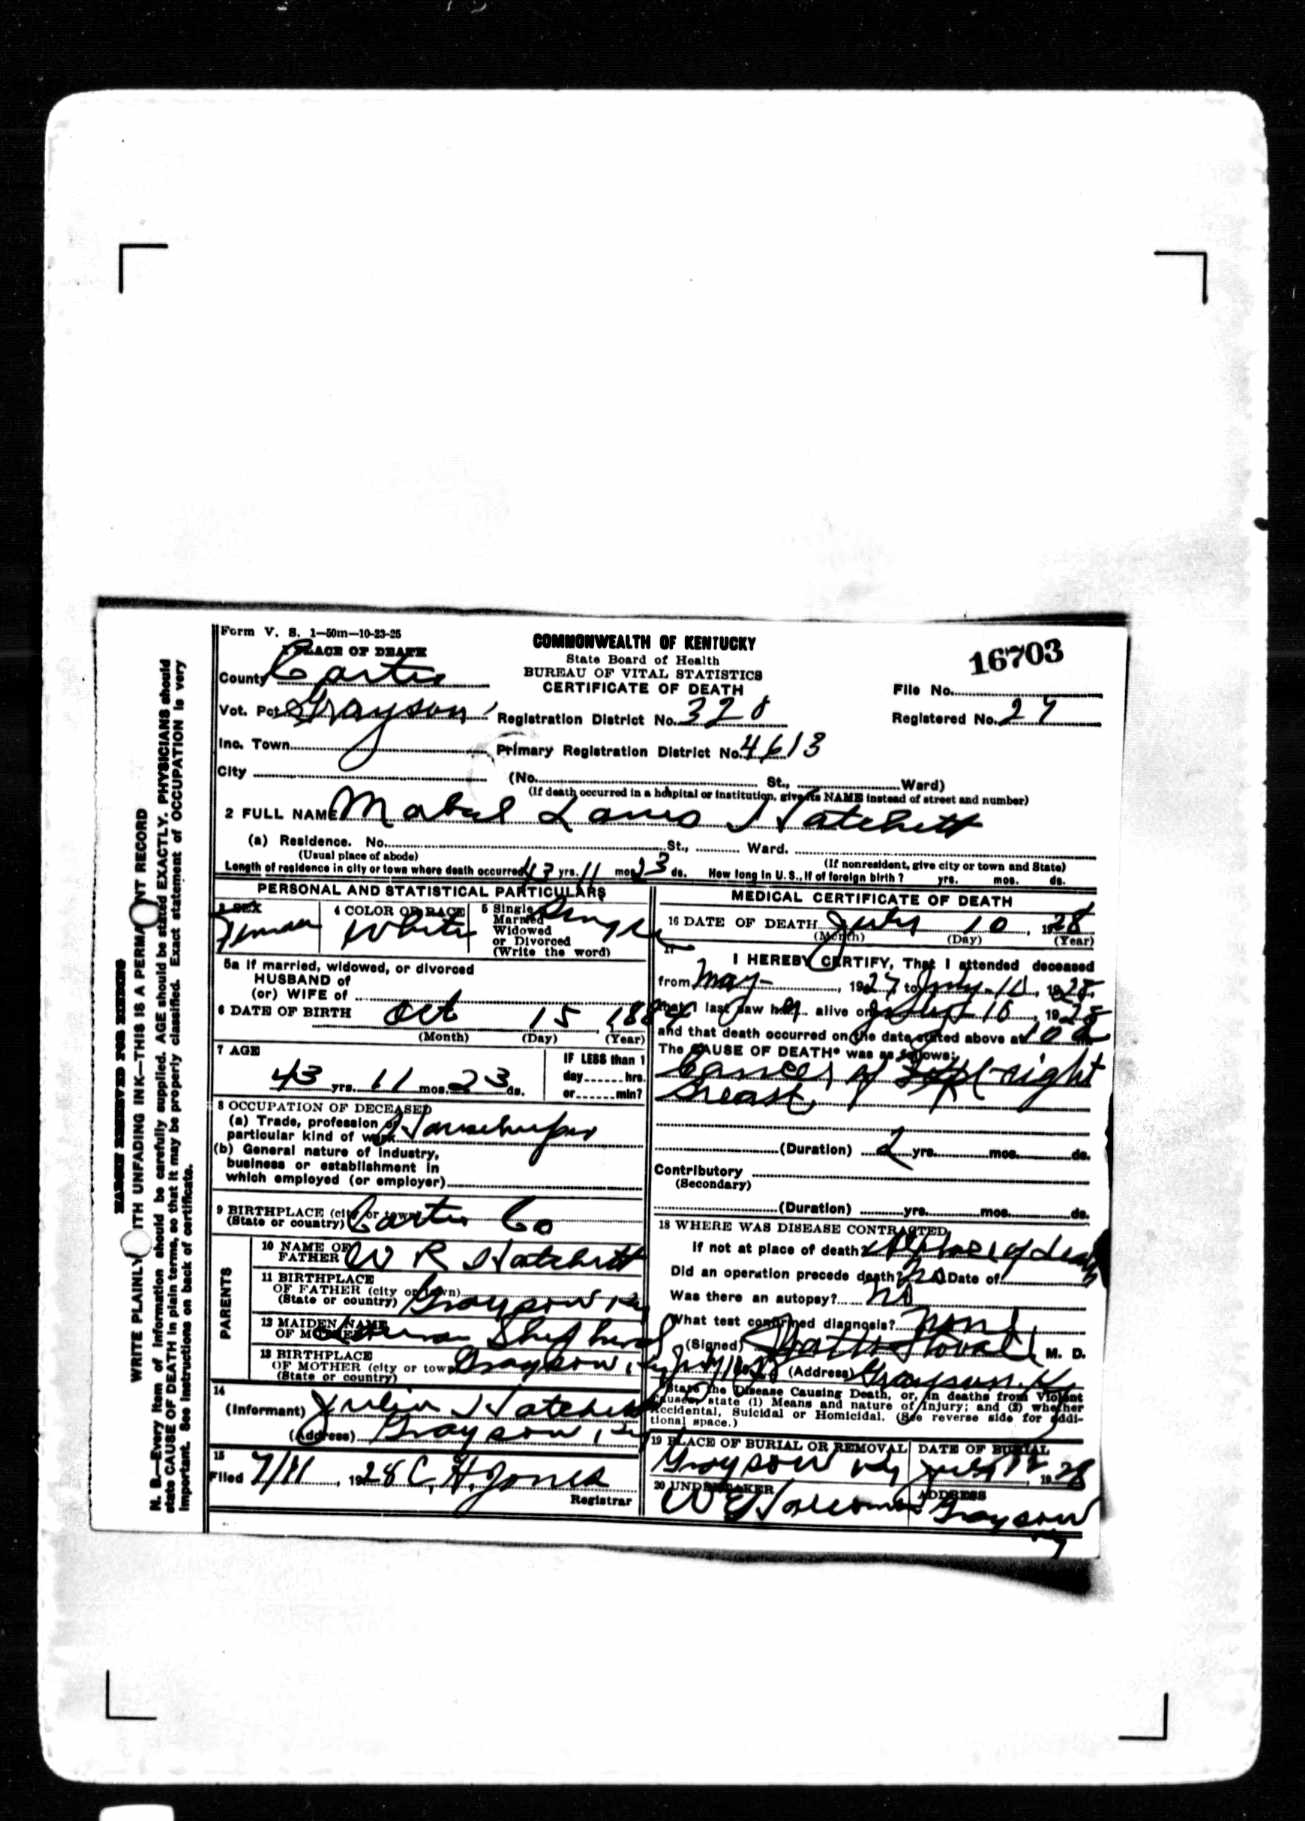 Form V. S. 1—50m—10-23-25
1 PLACE OF DEATH
COMMONWEALTH OF KENTUCKY
State Board of Health
BUREAU OF VITAL STATISTICS
CERTIFICATE OF DEATH
16703
County Carter
File No.
Vot. Pct. Grayson
Registration District No. 320
Registered No. 27
Inc. Town
Primary Registration District No. 4613
City (No. St., Ward)
(If death occurred in a hospital or institution, give its NAME instead of street and number)
2 FULL NAME Mabel Hatchett
(a) Residence. No. St., Ward.
(Usual place of abode) (If nonresident, give city or town and State)
Length of residence in city or town where death occurred 43 yrs. 11 mos. 23 ds. How long in U. S., if of foreign birth? yrs. mos. ds.
PERSONAL AND STATISTICAL PARTICULARS
3 SEX Female
4 COLOR OR RACE White
5 Single Married Widowed or Divorced (Write the word) Single
5a If married, widowed, or divorced
HUSBAND of
(or) WIFE of
6 DATE OF BIRTH Oct 15, 1884
(Month) (Day) (Year)
7 AGE
43 yrs. 11 mos. 23 ds.
IF LESS than 1
day hrs.
or min?
8 OCCUPATION OF DECEASED
(a) Trade, profession or
particular kind of work Housekeeper
(b) General nature of industry,
business or establishment in
which employed (or employer)
9 BIRTHPLACE (city or town)
(State or country) Carter Co
PARENTS
10 NAME OF
FATHER W R Hatchett
11 BIRTHPLACE
OF FATHER (city or town)
(State or country) Grayson Ky
12 MAIDEN NAME
OF MOTHER Shepherd
13 BIRTHPLACE
OF MOTHER (city or town)
(State or country) Grayson, Ky
14
(Informant) Julia Hatchett
(Address) Grayson, Ky
15
Filed 7/11, 1928 C. H. Jones
Registrar
MEDICAL CERTIFICATE OF DEATH
16 DATE OF DEATH July 10, 1928
(Month) (Day) (Year)
17
I HEREBY CERTIFY, That I attended deceased
from May, 1927 to July 10, 1928
that I last saw her alive on July 10, 1928
and that death occurred on the date stated above at 10 a
The CAUSE OF DEATH* was as follows:
Cancer of right
breast
(Duration) 2 yrs. mos. ds.
Contributory
(Secondary)
(Duration) yrs. mos. ds.
18 WHERE WAS DISEASE CONTRACTED
If not at place of death? At place of death
Did an operation precede death? no Date of
Was there an autopsy? no
What test confirmed diagnosis? none
(Signed) Stovall M. D.
(Address) Grayson Ky
*State the Disease Causing Death, or, in deaths from Violent
Causes, state (1) Means and nature of Injury; and (2) whether
Accidental, Suicidal or Homicidal. (See reverse side for additional space.)
19 PLACE OF BURIAL OR REMOVAL
Grayson Ky
DATE OF BURIAL
July 1928
20 UNDERTAKER
ADDRESS
Grayson
Ky
MARGIN RESERVED FOR BINDING
WRITE PLAINLY WITH UNFADING INK—THIS IS A PERMANENT RECORD
N. B.—Every item of information should be carefully supplied. AGE should be stated EXACTLY. PHYSICIANS should
state CAUSE OF DEATH in plain terms, so that it may be properly classified. Exact statement of OCCUPATION is very
important. See instructions on back of certificate.